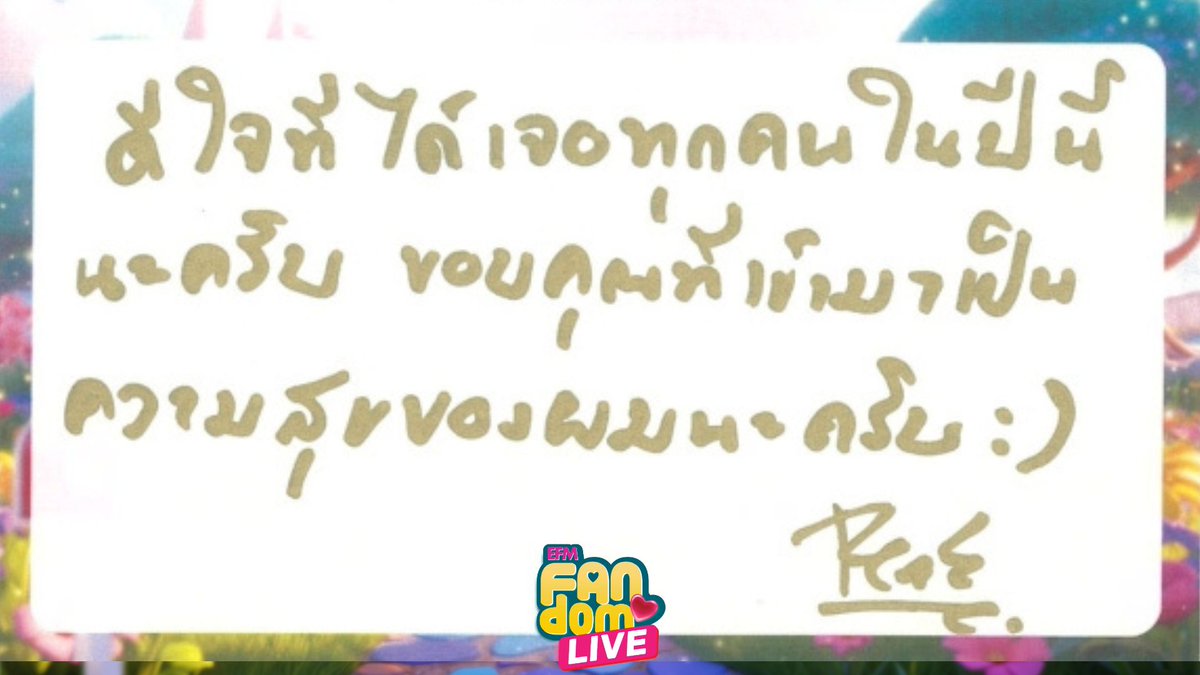 ดีใจที่ได้เจอทุกคนในปีนี้
นะครับ ขอบคุณที่เข้ามาเป็น
ความสุขของผมนะครับ :)
EFM
FAN
dom
LIVE